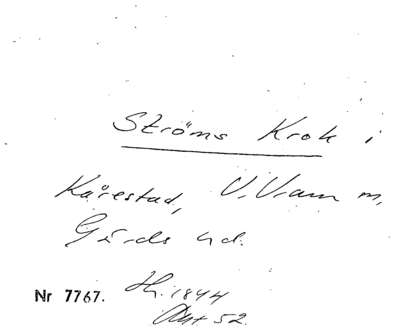 Ströms Krok i
Kårestad, V. Vram m,
Gärds hd.
Nr 7767. 1844
52.